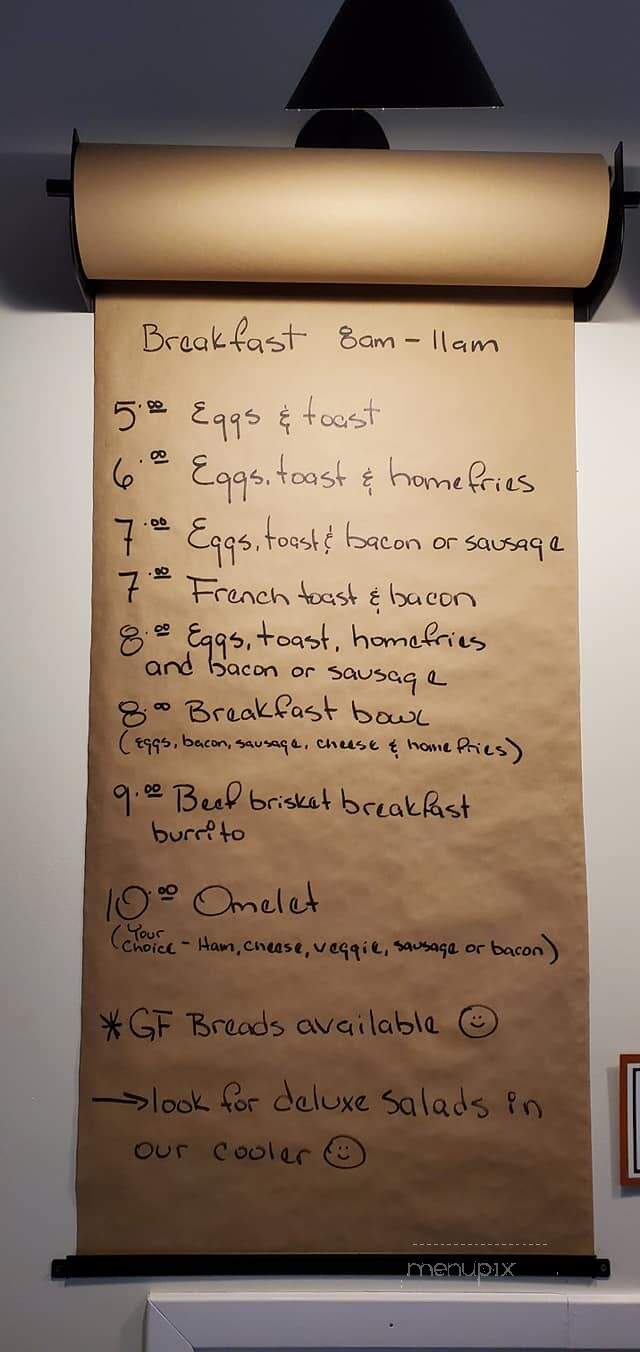 Breakfast 8am - 11am
5.00 Eggs & toast
6.00 Eggs, toast & homefries
7.00 Eggs, toast & bacon or sausage
7.00 French toast & bacon
8.00 Eggs, toast, homefries
and bacon or sausage
8.00 Breakfast bowl
(Eggs, bacon, sausage, cheese & homefries)
9.00 Beef brisket breakfast
burrito
10.00 Omelet
(Your Choice - Ham, cheese, veggie, sausage or bacon)
*GF Breads available ☺
→look for deluxe salads in
our cooler ☺
menupix